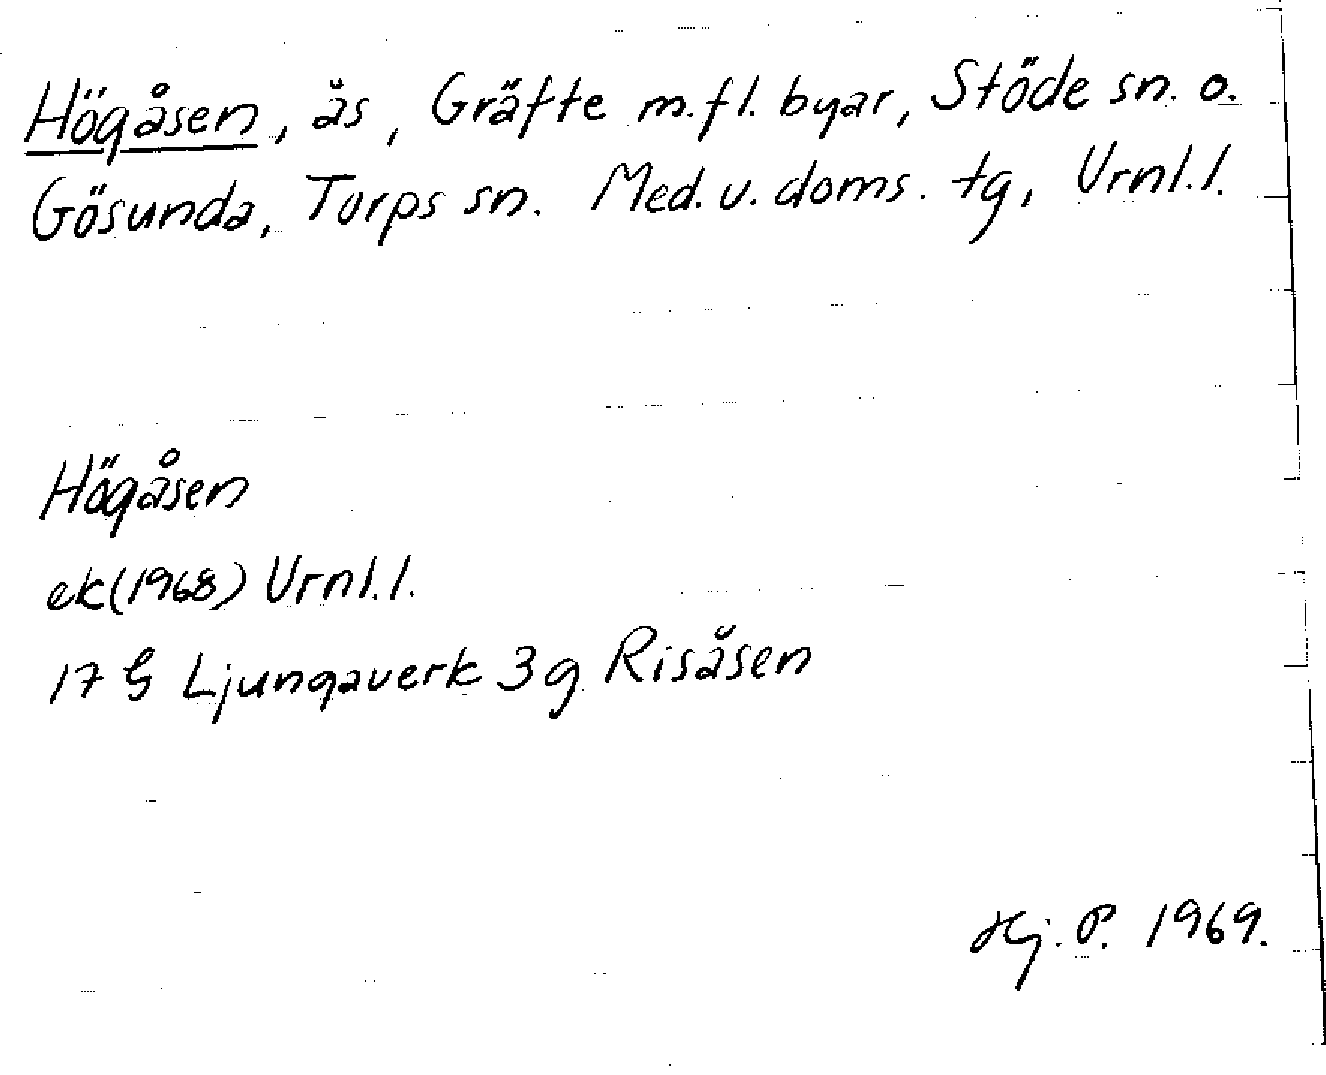 Högåsen, ås, Gräfte m.fl. byar, Stöde sn. o.
Gösunda, Torps sn. Med. v. doms. tg, Vrnl.l.
Högåsen
ek(1968) Vrnl.l.
17 G Ljungaverk 3g Risåsen
Hj. P. 1969.